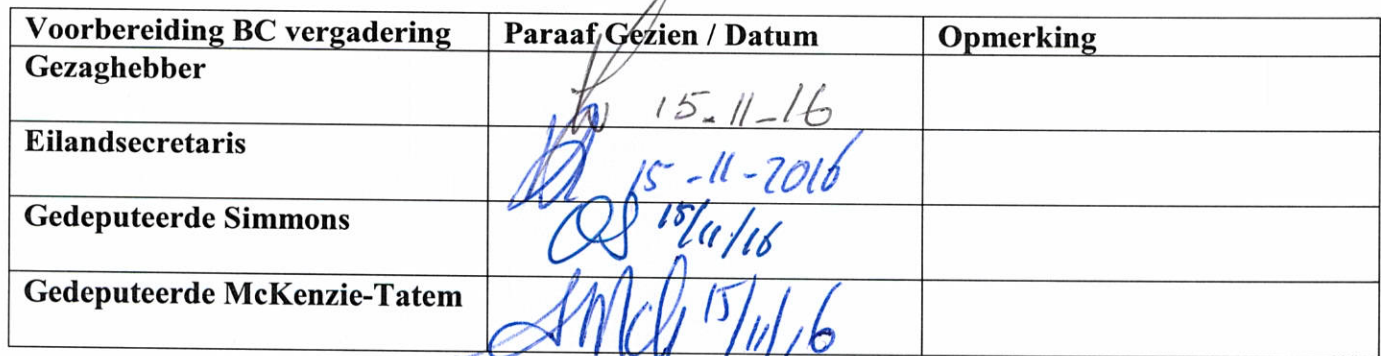 Voorbereiding BC vergadering Paraaf Gezien / Datum Opmerking
Gezaghebber 15-11-16
Eilandsecretaris 15-11-2016
Gedeputeerde Simmons 15/11/16
Gedeputeerde McKenzie-Tatem 15/11/16